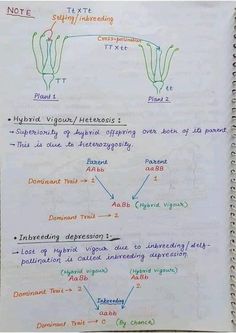 NOTE
TT x Tt
Selfing/inbreeding
Cross-pollination
TT x tt
TT
tt
Plant 1
Plant 2
• Hybrid Vigour/Heterosis :
→ Superiority of hybrid offspring over both of its parent
→ This is due to heterozygosity.
Parent Parent
AAbb aaBB
Dominant Trait → 1 1
AaBb (Hybrid Vigour)
Dominant Trait → 2
• Inbreeding depression :-
→ Loss of Hybrid Vigour due to inbreeding/self-
pollination is called inbreeding depression.
(Hybrid Vigour) (Hybrid Vigour)
AaBb AaBb
Dominant Trait → 2 2
Inbreeding
aabb
Dominant Trait → 0 (By Chance)